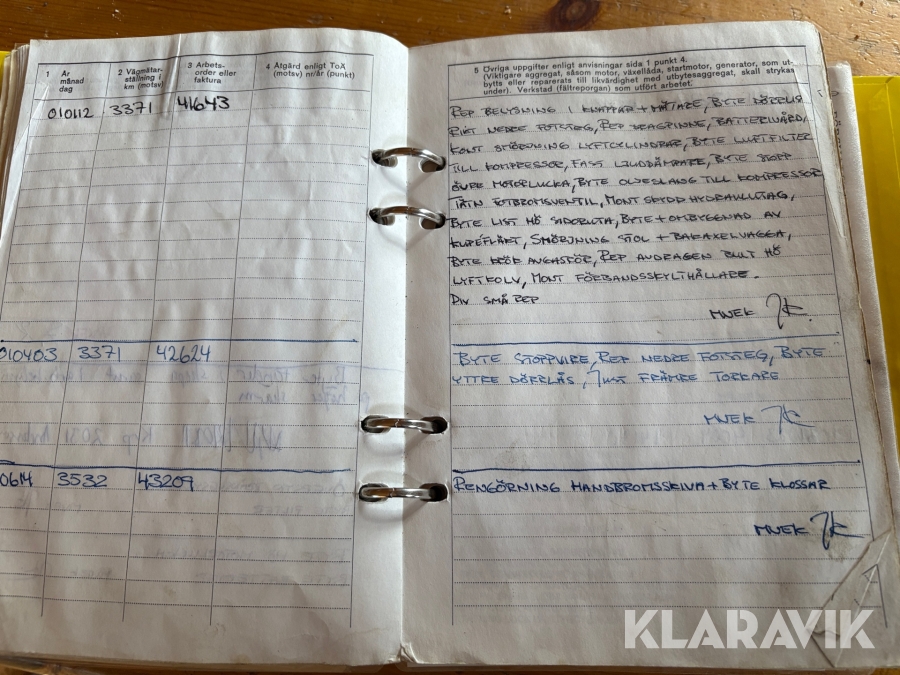 1 År månad dag
2 Vägmätar-ställning i km (motsv)
3 Arbets-order eller faktura
4 Åtgärd enligt ToÄ (motsv) nr/år (punkt)
010112 3371 41643
010403 3371 42624
0614 3532 43209
5 Övriga uppgifter enligt anvisningar sida 1 punkt 4.
(Viktigare aggregat, såsom motor, växellåda, startmotor, generator, som ut-
bytts eller reparerats till likvärdighet med utbytesaggregat, skall strykas
under). Verkstad (fältreporgan) som utfört arbetet.
REP BELYSNING I KNAPPAR + MÄTARE, BYTE DÖRRLÅS
RIKT NEDRE FOTSTEG, REP DRAGPINNE, BATTERIVÅRD,
KONT SMÖRJNING LYFTCYLINDRAR, BYTE LUFTFILTER
TILL KOMPRESSOR, FAST LJUDDÄMPARE, BYTE STOPP
ÖVRE MOTORLUCKA, BYTE OLJESLANG TILL KOMPRESSOR
TÄTN FOTBROMSVENTIL, MONT SKYDD HYDRAULUTTAG,
BYTE LIST HÖ SIDORUTA, BYTE + OMBYGGNAD AV
KUPÉFLÄKT, SMÖRJNING STOL + BAKAXELVAGGA,
BYTE KRÖK AVGASRÖR, REP AVDRAGEN BULT HÖ
LYFTKOLV, MONT FÖRBANDSSKYLTHÅLLARE.
DIV SMÅREP
MWEK
BYTE STOPPVIRE, REP NEDRE FOTSTEG, BYTE
YTTRE DÖRRLÅS, JUST FRÄMRE TORKARE
MWEK
RENGÖRNING HANDBROMSSKIVA + BYTE KLOSSAR
MWEK
KLARAVIK